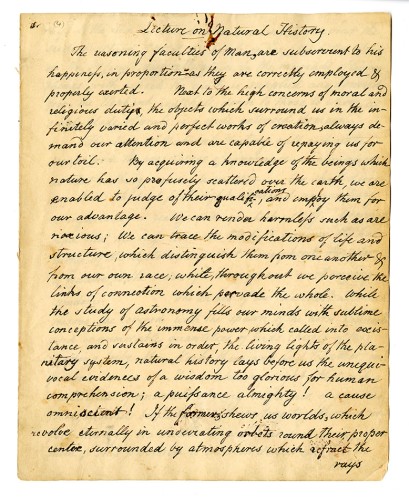 Lecture on Natural History.
The reasoning faculties of Man, are subservient to his
happiness, in proportion as they are correctly employed &
properly exerted. Next to the high concerns of moral and
religious duty, the objects which surround us in the in-
finitely varied and perfect works of creation, always de-
mand our attention and are capable of repaying us for
our toil. By acquiring a knowledge of the beings which
nature has so profusely scattered over the earth, we are
enabled to judge of their qualifications, and employ them for
our advantage. We can render harmless such as are
noxious; We can trace the modifications of life and
structure, which distinguish them from one another &
from our own race; while, throughout we perceive the
links of connection which pervade the whole. While
the study of astronomy fills our minds with sublime
conceptions of the immense power, which called into exis-
tence, and sustains in order, the living lights of the pla-
netary system, natural history lays before us the unequi-
vocal evidences of a wisdom too glorious for human
comprehension; a puissance almighty! a cause
omniscient! If the former, shews us worlds, which
revolve eternally in undeviating orbits round their proper
centre, surrounded by atmospheres which refract the
rays